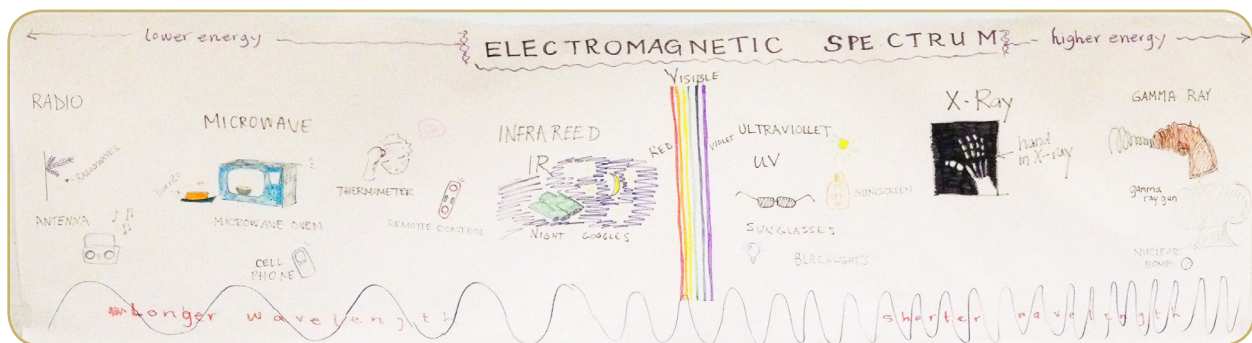 lower energy
ELECTROMAGNETIC SPECTRUM
higher energy
RADIO
RADIOWAVES
ANTENNA
MICROWAVE
Burrito
MICROWAVE OVEN
CELL
PHONE
THERMIMETER
REMOTE CONTROL
INFRAREED
IR
NIGHT GOGGLES
VISIBLE
RED
VIOLET
ULTRAVIOLLET
UV
SUNSCREEN
SUNGLASSES
BLACKLIGHTS
X-Ray
hand
in X-ray
GAMMA RAY
gamma
ray gun
NUCLEAR
BOMB
Longer wavelength
shorter wavelength